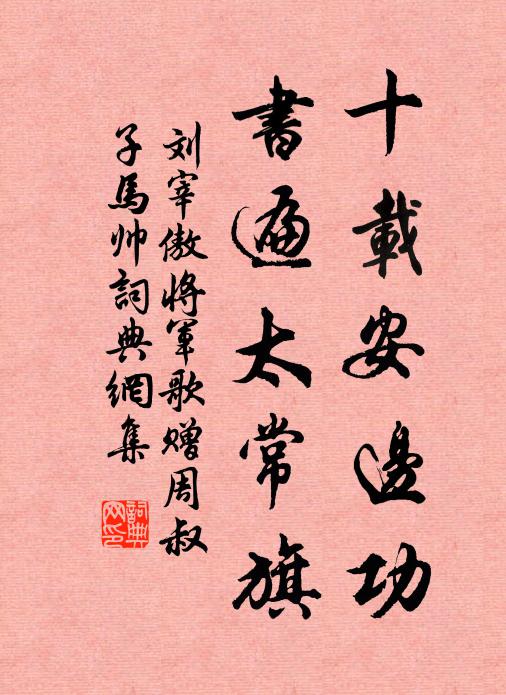 十載安邊功
書遍太常旗
刘宰傲将軍歌赠周叔
子馬帅詞典網集
詞典网印